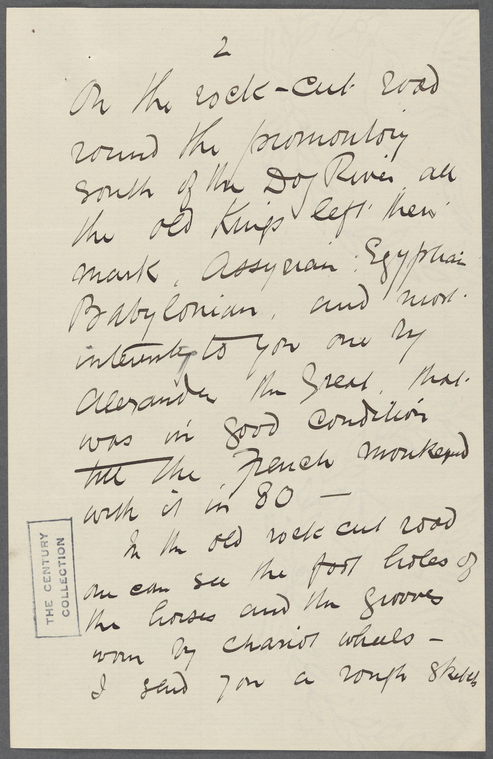 2
On the rock-cut road
round the promontory
south of the Dog River all
the old Kings left their
mark, Assyrian, Egyptian
Babylonian, and most
interesting to you one by
Alexander the Great, that
was in good condition
till the French monkeyed
with it in 80 —
In the old rock cut road
one can see the foot holes of
the horses and the grooves
worn by chariot wheels —
I send you a rough sketch
THE CENTURY
COLLECTION